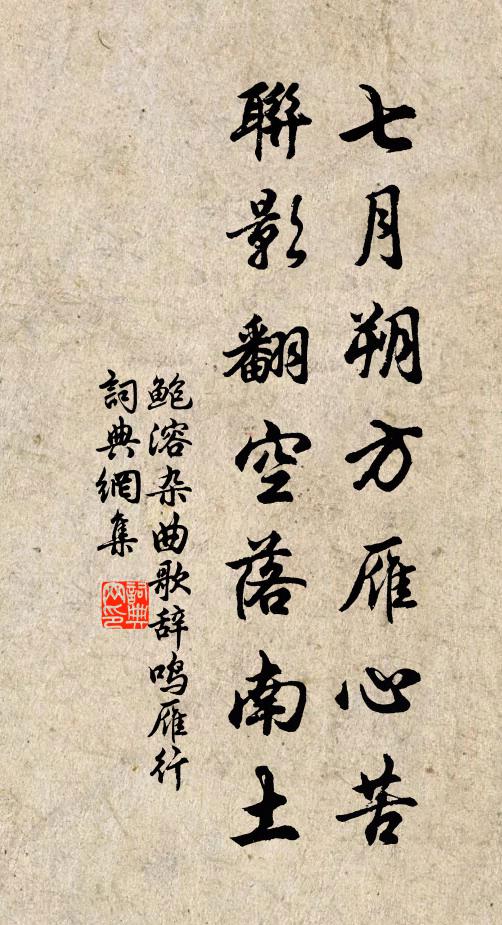 七月朔方雁心苦
聯影翻空落南土
鲍溶杂曲歌辞鸣雁行
詞典網集
詞典网印